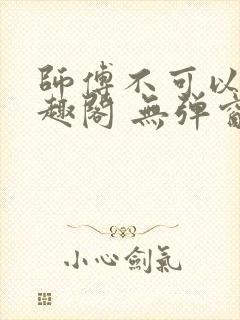 師傅不可以
趣閣 無彈窗
小心劍氣